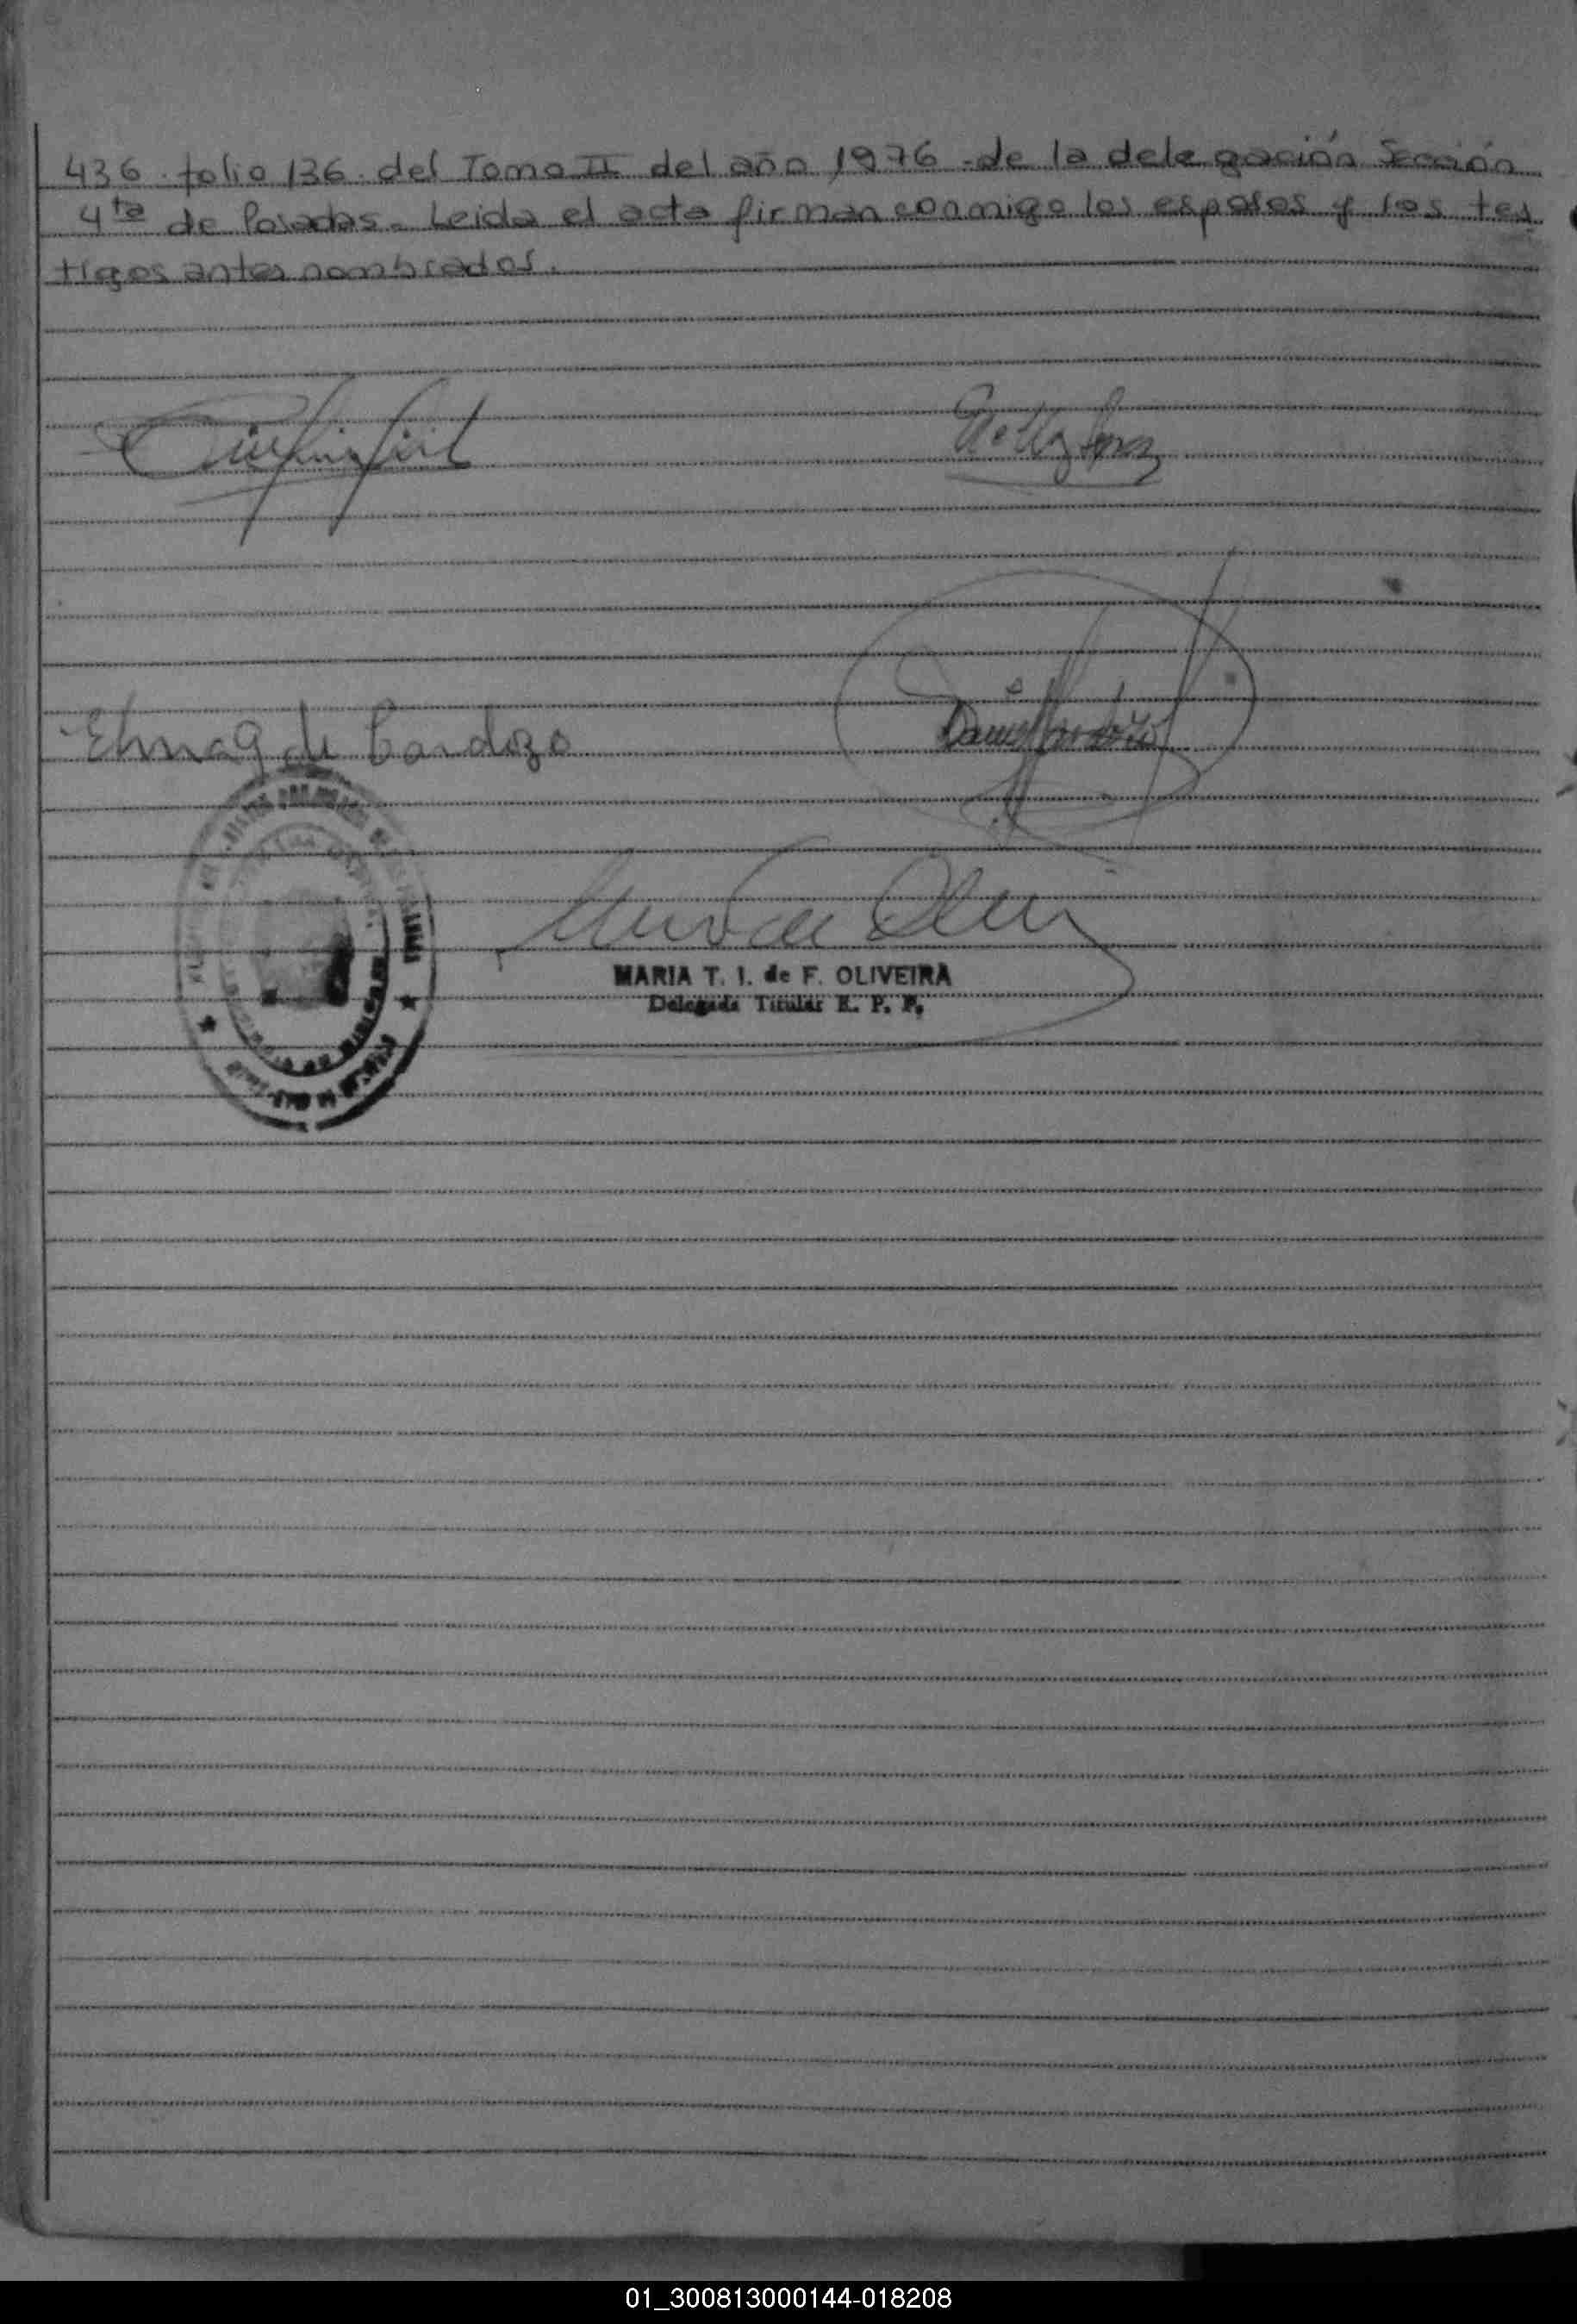 436. folio 136. del Tomo II del año 1976 - de la delegación Sección
4ta de Posadas - Leida el acta firman conmigo los esposos y los tes
tigos antes nombrados.
Elma G de Cardozo
Daniel Cardozo
MARIA T. I. de F. OLIVEIRA
Delegada Titular R. P. P.
01_300813000144-018208